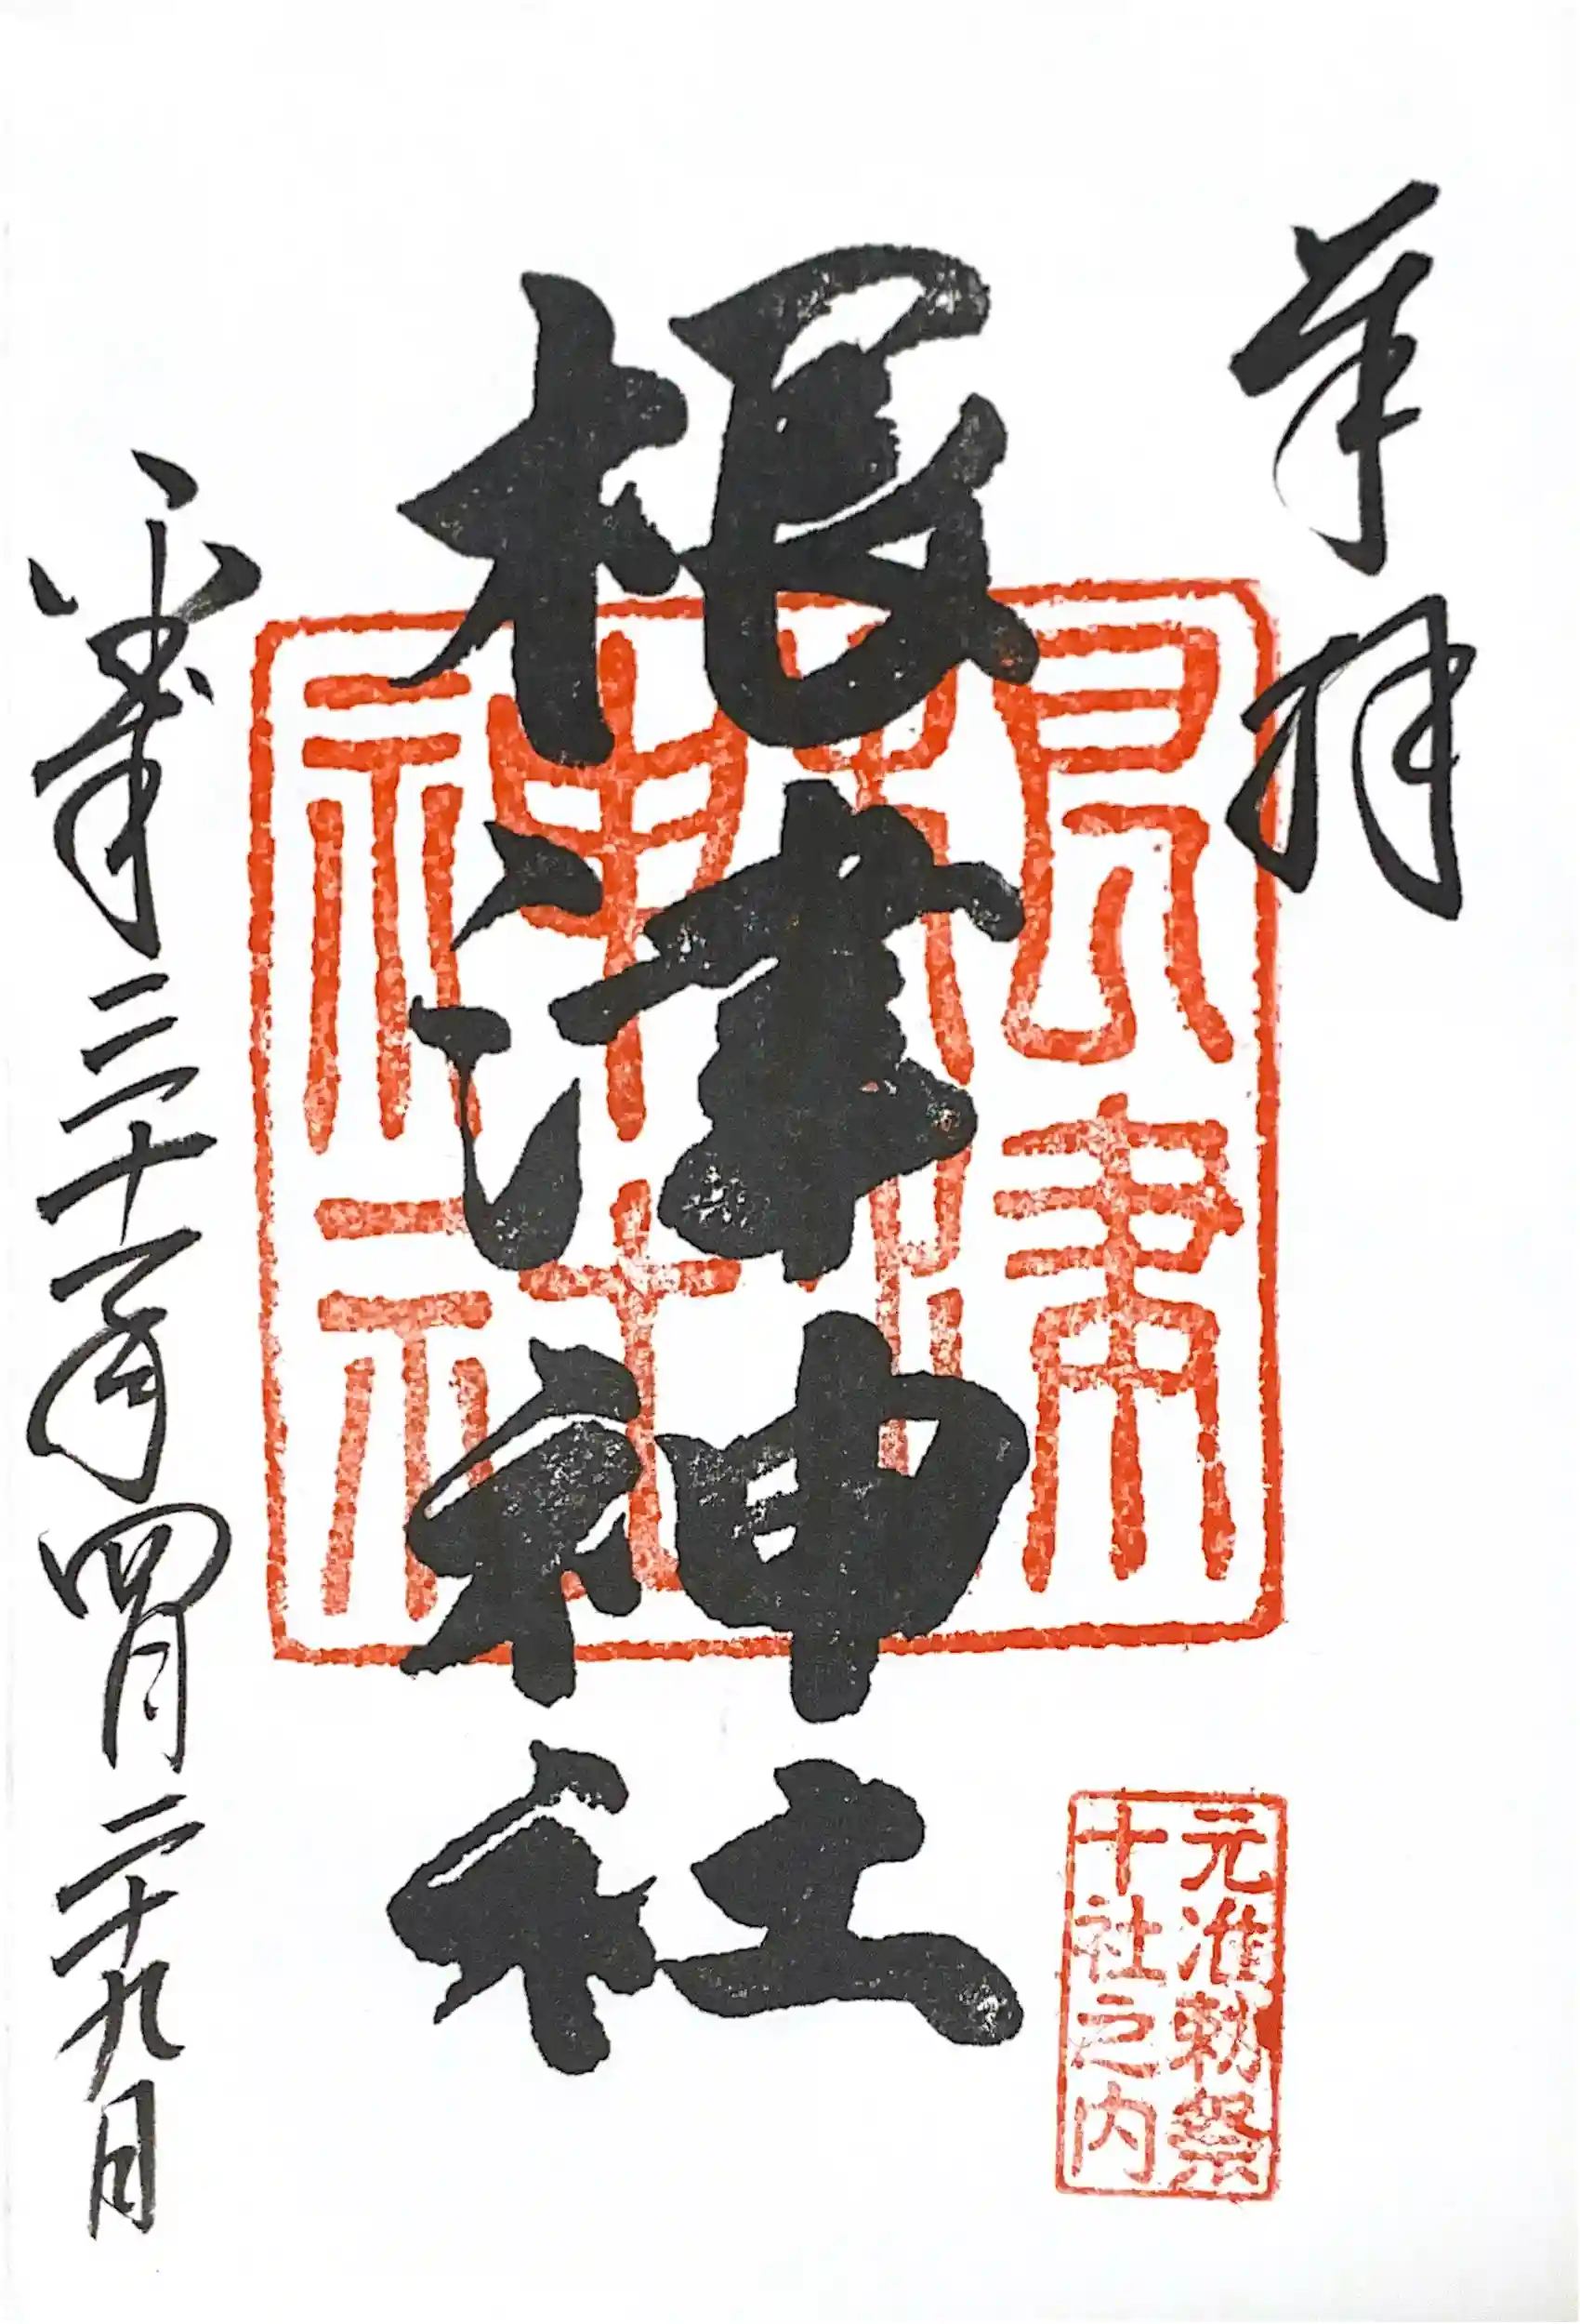 奉拝
根津神社
根津
神社
元准勅祭
十社之内
平成三十年四月二十九日